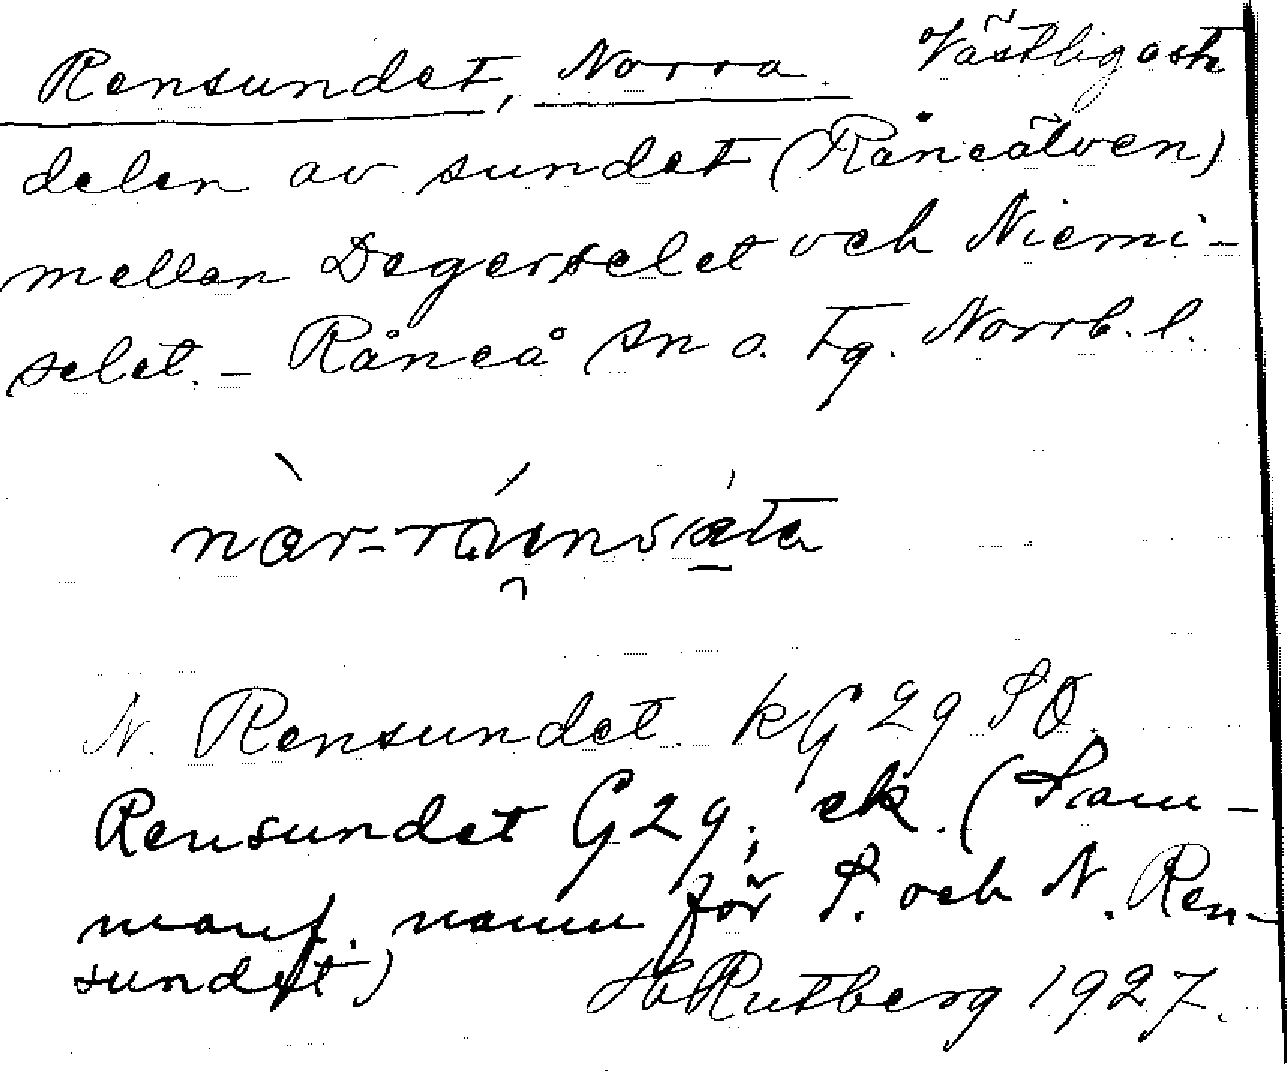 Rensundet, Norra. Västligaste
delen av sundet (Råneälven)
mellan Degerselet och Niemi-
selet. - Råneå sn o. tg. Norrb. l.
N. Rensundet kG 29 SO.
Rensundet G29; ek. (Sam-
manf. namn för S. och N. Ren-
sundet) HRutberg 1927.